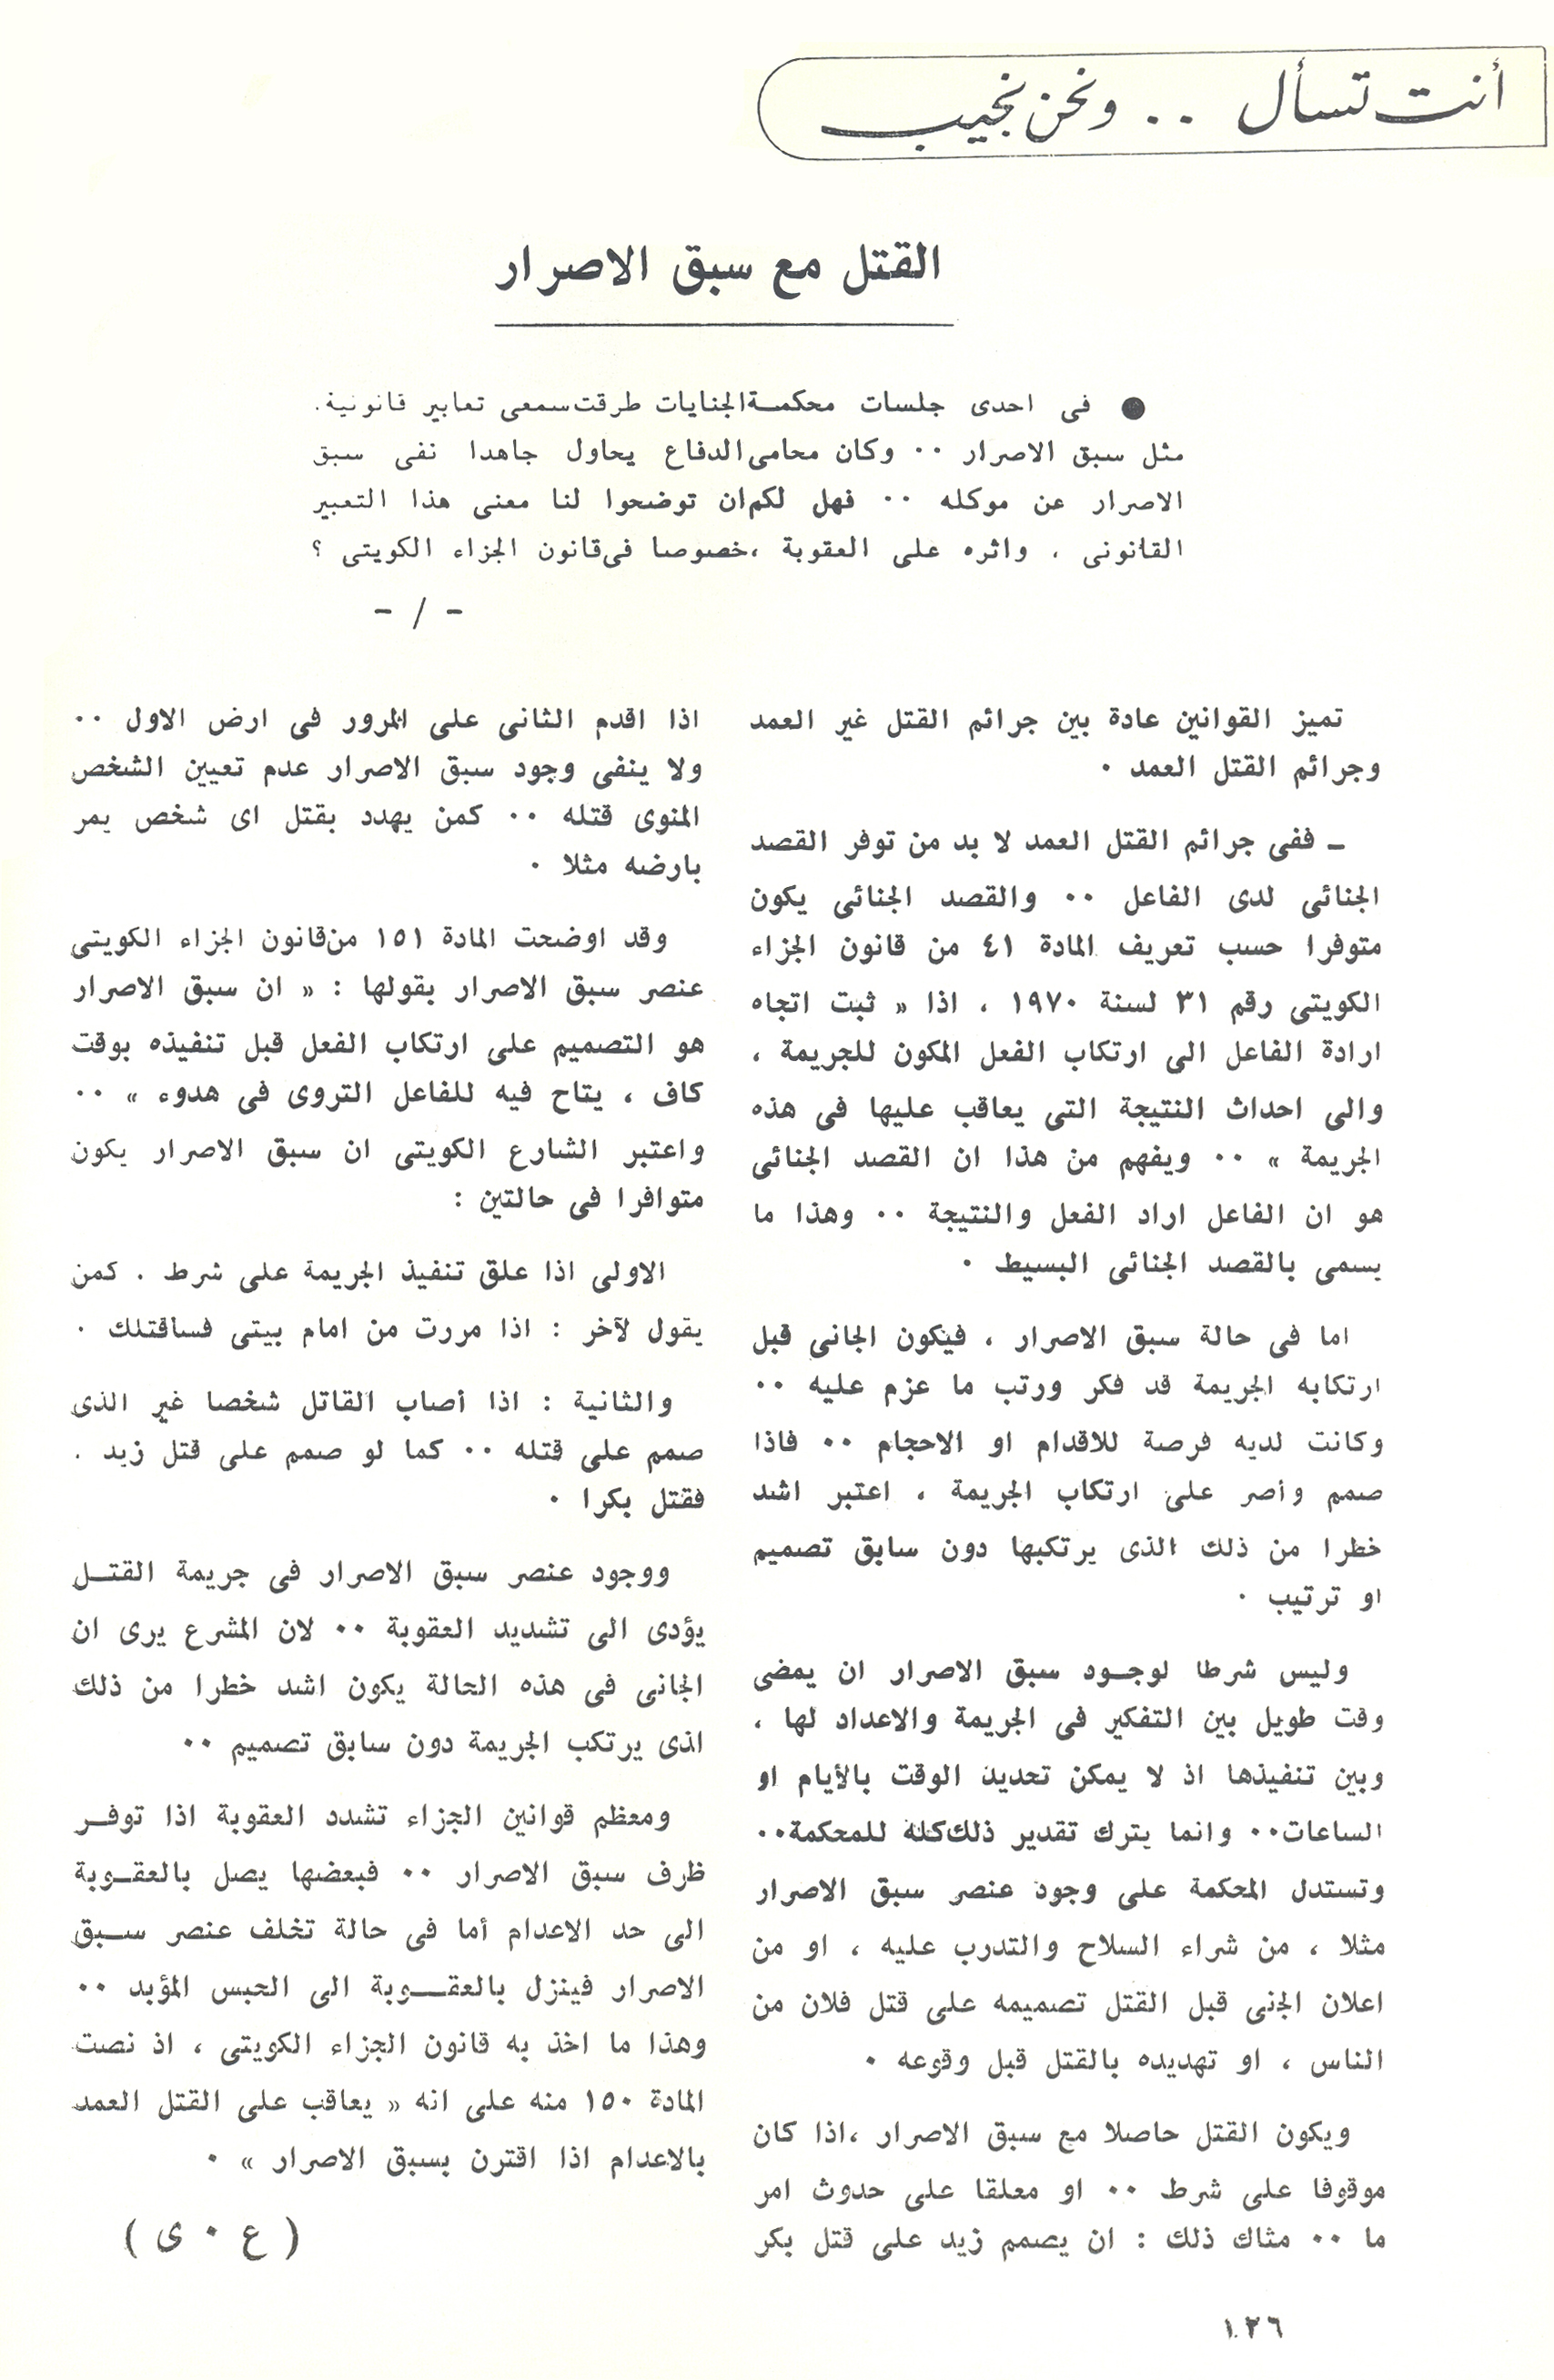 أنت تسأل .. ونحن نجيب
القتل مع سبق الاصرار
● فى احدى جلسات محكمة الجنايات طرقت سمعى تعابير قانونية .
مثل سبق الاصرار ٠٠ وكان محامى الدفاع يحاول جاهدا نفى سبق
الاصرار عن موكله ٠٠ فهل لكم ان توضحوا لنا معنى هذا التعبير
القانونى ، واثره على العقوبة ، خصوصا فى قانون الجزاء الكويتى ؟
- / -
تميز القوانين عادة بين جرائم القتل غير العمد
وجرائم القتل العمد ٠
ـ ففى جرائم القتل العمد لا بد من توفر القصد
الجنائى لدى الفاعل ٠٠ والقصد الجنائى يكون
متوفرا حسب تعريف المادة ٤١ من قانون الجزاء
الكويتى رقم ٣١ لسنة ١٩٧٠ ، اذا « ثبت اتجاه
ارادة الفاعل الى ارتكاب الفعل المكون للجريمة ،
والى احداث النتيجة التى يعاقب عليها فى هذه
الجريمة » ٠٠ ويفهم من هذا ان القصد الجنائى
هو ان الفاعل اراد الفعل والنتيجة ٠٠ وهذا ما
يسمى بالقصد الجنائى البسيط ٠
اما فى حالة سبق الاصرار ، فيكون الجانى قبل
ارتكابه الجريمة قد فكر ورتب ما عزم عليه ٠٠
وكانت لديه فرصة للاقدام او الاحجام ٠٠ فاذا
صمم وأصر على ارتكاب الجريمة ، اعتبر اشد
خطرا من ذلك الذى يرتكبها دون سابق تصميم
او ترتيب ٠
وليس شرطا لوجـود سبق الاصرار ان يمضى
وقت طويل بين التفكير فى الجريمة والاعداد لها ،
وبين تنفيذها اذ لا يمكن تحديد الوقت بالأيام او
الساعات٠٠ وانما يترك تقدير ذلك كله للمحكمة٠٠
وتستدل المحكمة على وجود عنصر سبق الاصرار
مثلا ، من شراء السلاح والتدرب عليه ، او من
اعلان الجنى قبل القتل تصميمه على قتل فلان من
الناس ، او تهديده بالقتل قبل وقوعه ٠
ويكون القتل حاصلا مع سبق الاصرار ،اذا كان
موقوفا على شرط ٠٠ او معلقا على حدوث امر
ما ٠٠ مثاك ذلك : ان يصمم زيد على قتل بكر
اذا اقدم الثانى على المرور فى ارض الاول ٠٠
ولا ينفى وجود سبق الاصرار عدم تعيين الشخص
المنوى قتله ٠٠ كمن يهدد بقتل اى شخص يمر
بارضه مثلا ٠
وقد اوضحت المادة ١٥١ من قانون الجزاء الكويتى
عنصر سبق الاصرار بقولها : « ان سبق الاصرار
هو التصميم على ارتكاب الفعل قبل تنفيذه بوقت
كاف ، يتاح فيه للفاعل التروى فى هدوء » ٠٠
واعتبر الشارع الكويتى ان سبق الاصرار يكون
متوافرا فى حالتين :
الاولى اذا علق تنفيذ الجريمة على شرط . كمن
يقول لآخر : اذا مررت من امام بيتى فساقتلك ٠
والثانية : اذا أصاب القاتل شخصا غير الذى
صمم على قتله ٠٠ كما لو صمم على قتل زيد .
فقتل بكرا ٠
ووجود عنصر سبق الاصرار فى جريمة القتـل
يؤدى الى تشديد العقوبة ٠٠ لان المشرع يرى ان
الجانى فى هذه الحالة يكون اشد خطرا من ذلك
اذى يرتكب الجريمة دون سابق تصميم ٠٠
ومعظم قوانين الجزاء تشدد العقوبة اذا توفـر
ظرف سبق الاصرار ٠٠ فبعضها يصل بالعقـوبة
الى حد الاعدام أما فى حالة تخلف عنصر سـبق
الاصرار فينزل بالعقـــوبة الى الحبس المؤبد ٠٠
وهذا ما اخذ به قانون الجزاء الكويتى ، اذ نصت
المادة ١٥٠ منه على انه « يعاقب على القتل العمد
بالاعدام اذا اقترن بسبق الاصرار » ٠
( ع ٠ ى )
١٢٦